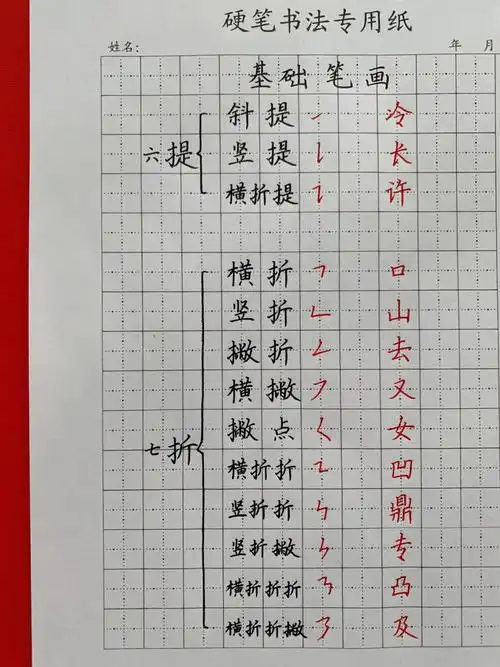 硬笔书法专用纸
姓名: 年 月
基础笔画
六提
斜提 ㇀ 冷
竖提 𠄌 长
横折提 ㇊ 许
七折
横折 ㇕ 口
竖折 ㇗ 山
撇折 ㇜ 去
横撇 ㇇ 又
撇点 ㇛ 女
横折折 ㇅ 凹
竖折折 ㇞ 鼎
竖折撇 ㇞ 专
横折折折 ㇎ 凸
横折折撇 ㇋ 及